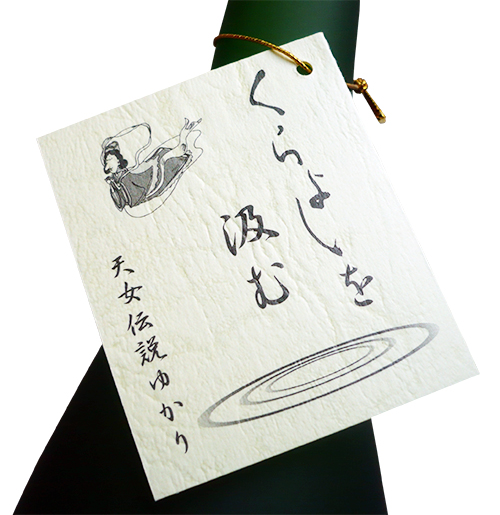 くらよしを
汲む
天女伝説ゆかり